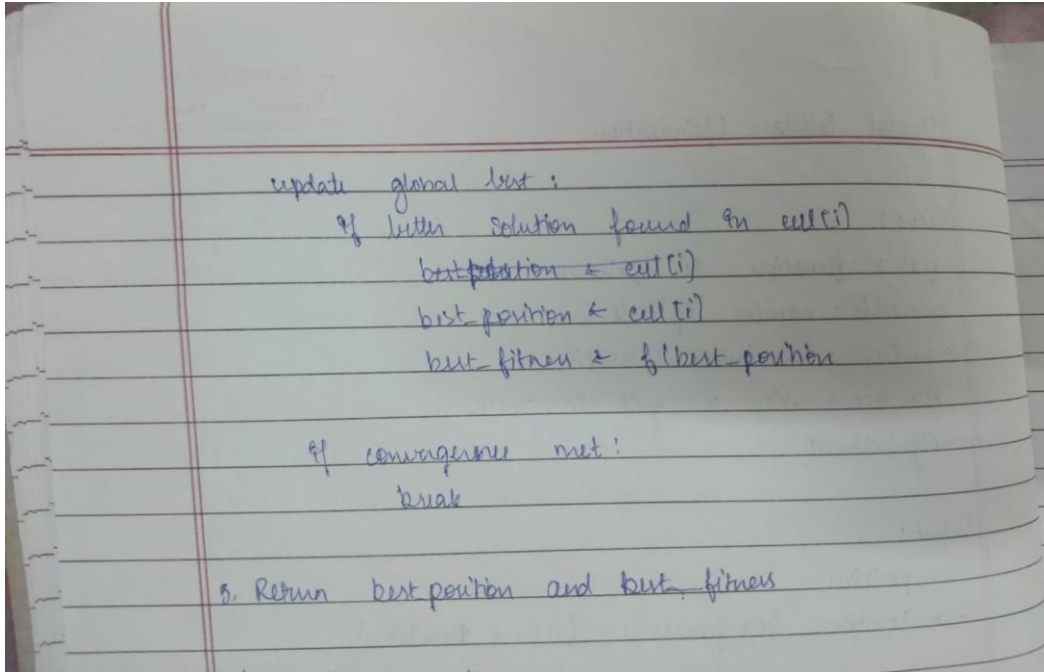 update global best :
if better solution found in cell[i]
best_position ← cell[i]
best_position ← cell[i]
best_fitness ← f(best_position
if convergence met :
break
3. Return best position and best_fitness